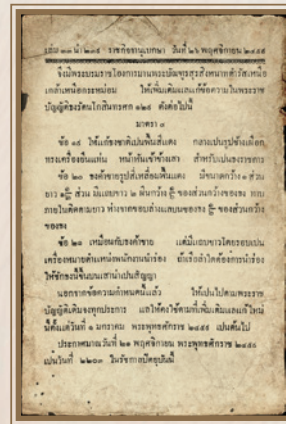 เล่ม ๓๓ น่า ๒๓๕ ราชกิจจานุเบกษา วันที่ ๒๖ พฤศจิกายน ๒๔๕๙
จึงมีพระบรมราชโองการมานพระบัณฑูรสุรสิงหนาทดำรัสเหนือ
เกล้าเหนือกระหม่อม ให้เพิ่มเติมแลแก้ข้อความในพระราช
บัญญัติธงรัตนโกสินทรศก ๑๒๙ ดังต่อไปนี้
มาตรา ๓
ข้อ ๑๙ ให้แก้ธงชาติเปนพื้นสีแดง กลางเปนรูปช้างเผือก
ทรงเครื่องยืนแท่น หน้าหันเข้าข้างเสา สำหรับเปนธงราชการ
ข้อ ๒๐ ธงค้าขายรูปสี่เหลี่ยมพื้นแดง มีขนาดกว้าง ๑ ส่วน
ยาว ๑ ส่วน มีแถบขาว ๒ ผืนกว้าง ของส่วนกว้างของธง ทาบ
ภายในติดตามยาว ห่างจากขอบล่างแลบนของธง ของส่วนกว้าง
ของธง
ข้อ ๒๑ เหมือนกับธงค้าขาย แต่มีแถบขาวโดยรอบเปน
เครื่องหมายตำแหน่งพนักงานนำร่อง ถ้าเรือลำใดต้องการนำร่อง
ให้ชักธงนี้ขึ้นบนเสาน่าเปนสัญญา
นอกจากข้อความกำหนดนี้แล้ว ให้เปนไปตามพระราช
บัญญัติเดิมจงทุกประการ แลให้คงใช้ตามที่เพิ่มเติมแลแก้ใหม่
นี้ตั้งแต่วันที่ ๑ มกราคม พระพุทธศักราช ๒๔๕๙ เปนต้นไป
ประกาศมาณวันที่ ๒๑ พฤศจิกายน พระพุทธศักราช ๒๔๕๙
เปนวันที่ ๒๒๐๓ ในรัชกาลปัตยุบันนี้